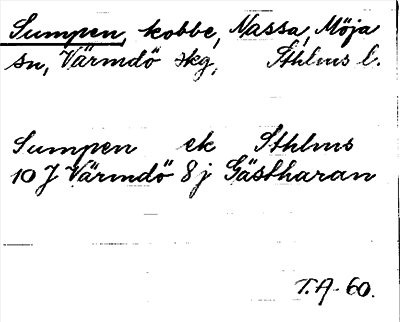 Sumpen, kobbe, Nassa, Möja
sn, Värmdö skg, Sthlms l.
Sumpen ek Sthlms
10 J Värmdö 8 j Gästharan
T.A. 60.